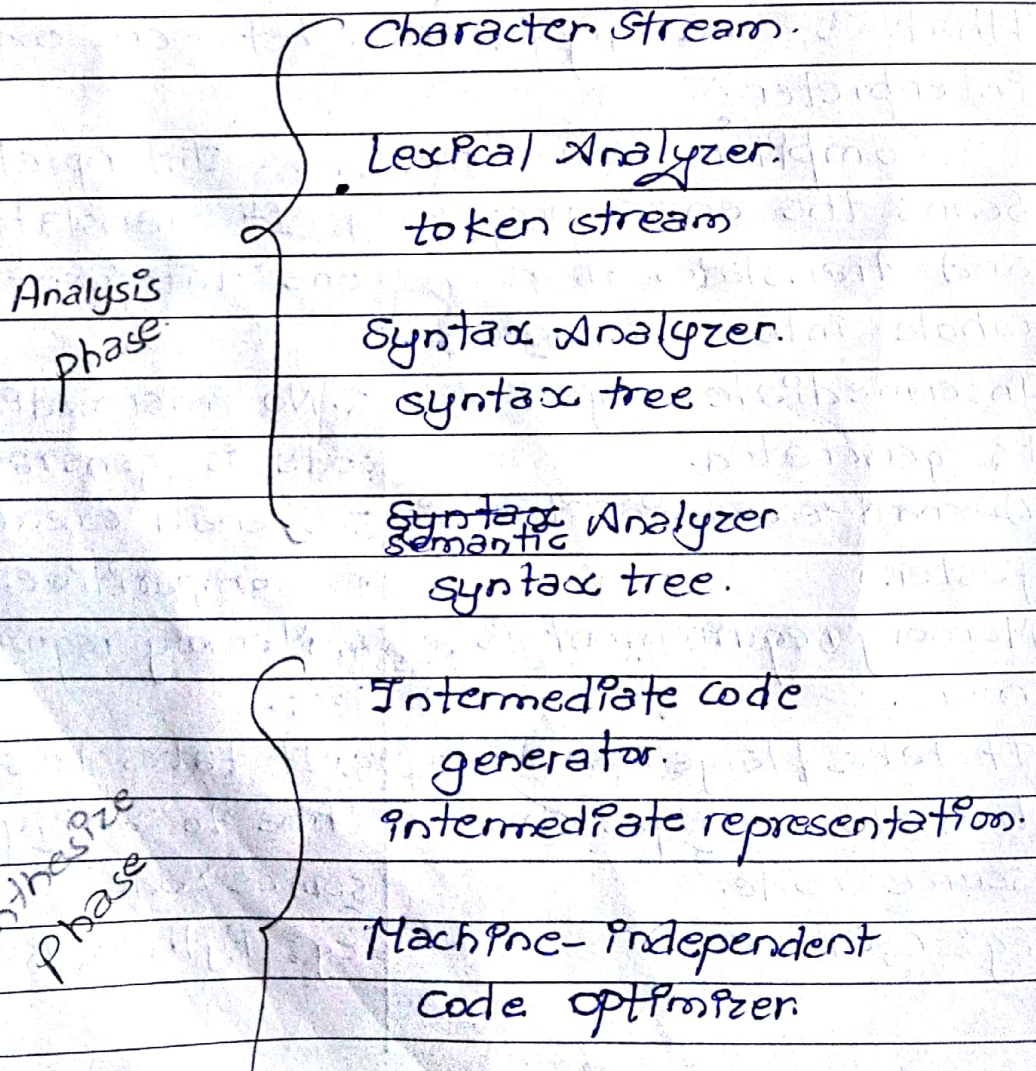 Character Stream.
Lexical Analyzer.
token stream
Analysis
phase.
Syntax Analyzer.
syntax tree
Syntax Analyzer
semantic
syntax tree.
Intermediate code
generator.
intermediate representation.
phase
Machine-independent
Code optimizer.